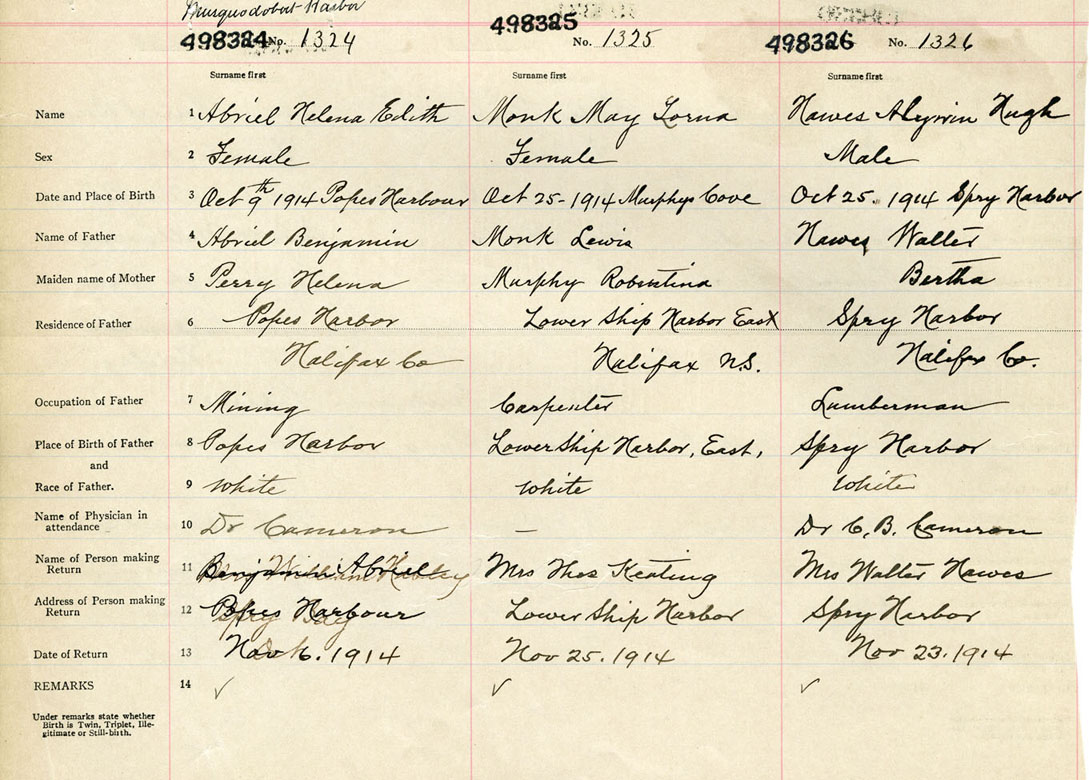 Musquodoboit Harbor
498324 No. 1324 498325 No. 1325 498326 No. 1326
Surname first Surname first Surname first
Name 1 Abriel Helena Edith Monk May Lorna Hawes Hugh
Sex 2 Female Female Male
Date and Place of Birth 3 Oct 9th 1914 Popes Harbour Oct 25-1914 Murphys Cove Oct 25. 1914 Spry Harbor
Name of Father 4 Abriel Benjamin Monk Lewis Hawes Walter
Maiden name of Mother 5 Perry Helena Murphy Robertina Bertha
Residence of Father 6 Popes Harbor Lower Ship Harbor East Spry Harbor
Halifax Co Halifax N.S. Halifax Co.
Occupation of Father 7 Mining Carpenter Lumberman
Place of Birth of Father 8 Popes Harbor Lower Ship Harbor, East, Spry Harbor
and
Race of Father. 9 White White White
Name of Physician in
attendance 10 Dr Cameron — Dr C. B. Cameron
Name of Person making
Return 11 Benjamin Abriel Mrs Thos Keating Mrs Walter Hawes
Address of Person making
Return 12 Popes Harbour Lower Ship Harbor Spry Harbor
Date of Return 13 Nov 16. 1914 Nov 25. 1914 Nov 23. 1914
REMARKS 14 ✓ ✓ ✓
Under remarks state whether
Birth is Twin, Triplet, Ille-
gitimate or Still-birth.